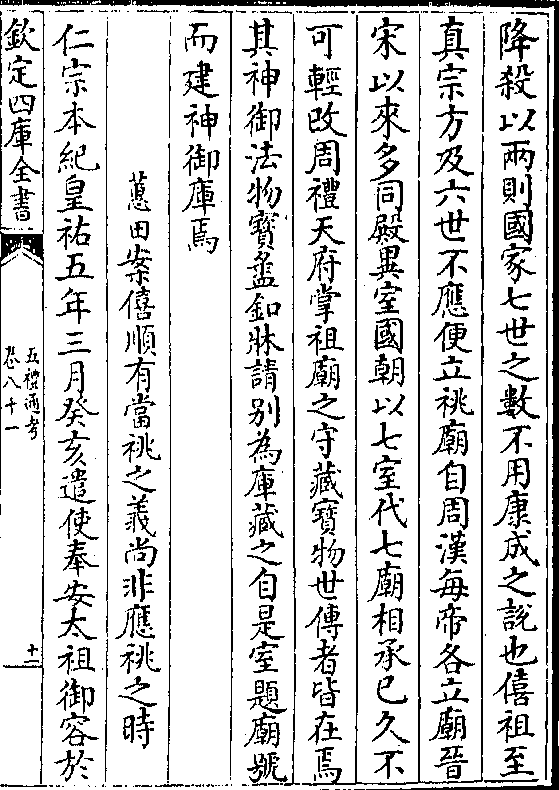 降殺以兩則國家七世之數不用康成之說也僖祖至
真宗方及六世不應便立祧廟自周漢每帝各立廟晉
宋以來多同殿異室國朝以七室代七廟相承已久不
可輕改周禮天府掌祖廟之守藏寶物世傳者皆在焉
其神御法物寶盝釦牀請别為庫藏之自是室題廟號
而建神御庫焉
蕙田案僖順有當祧之義尚非應祧之時
仁宗本紀皇祐五年三月癸亥遣使奉安太祖御容於
欽定四庫全書
五禮通考
卷八十一
十二